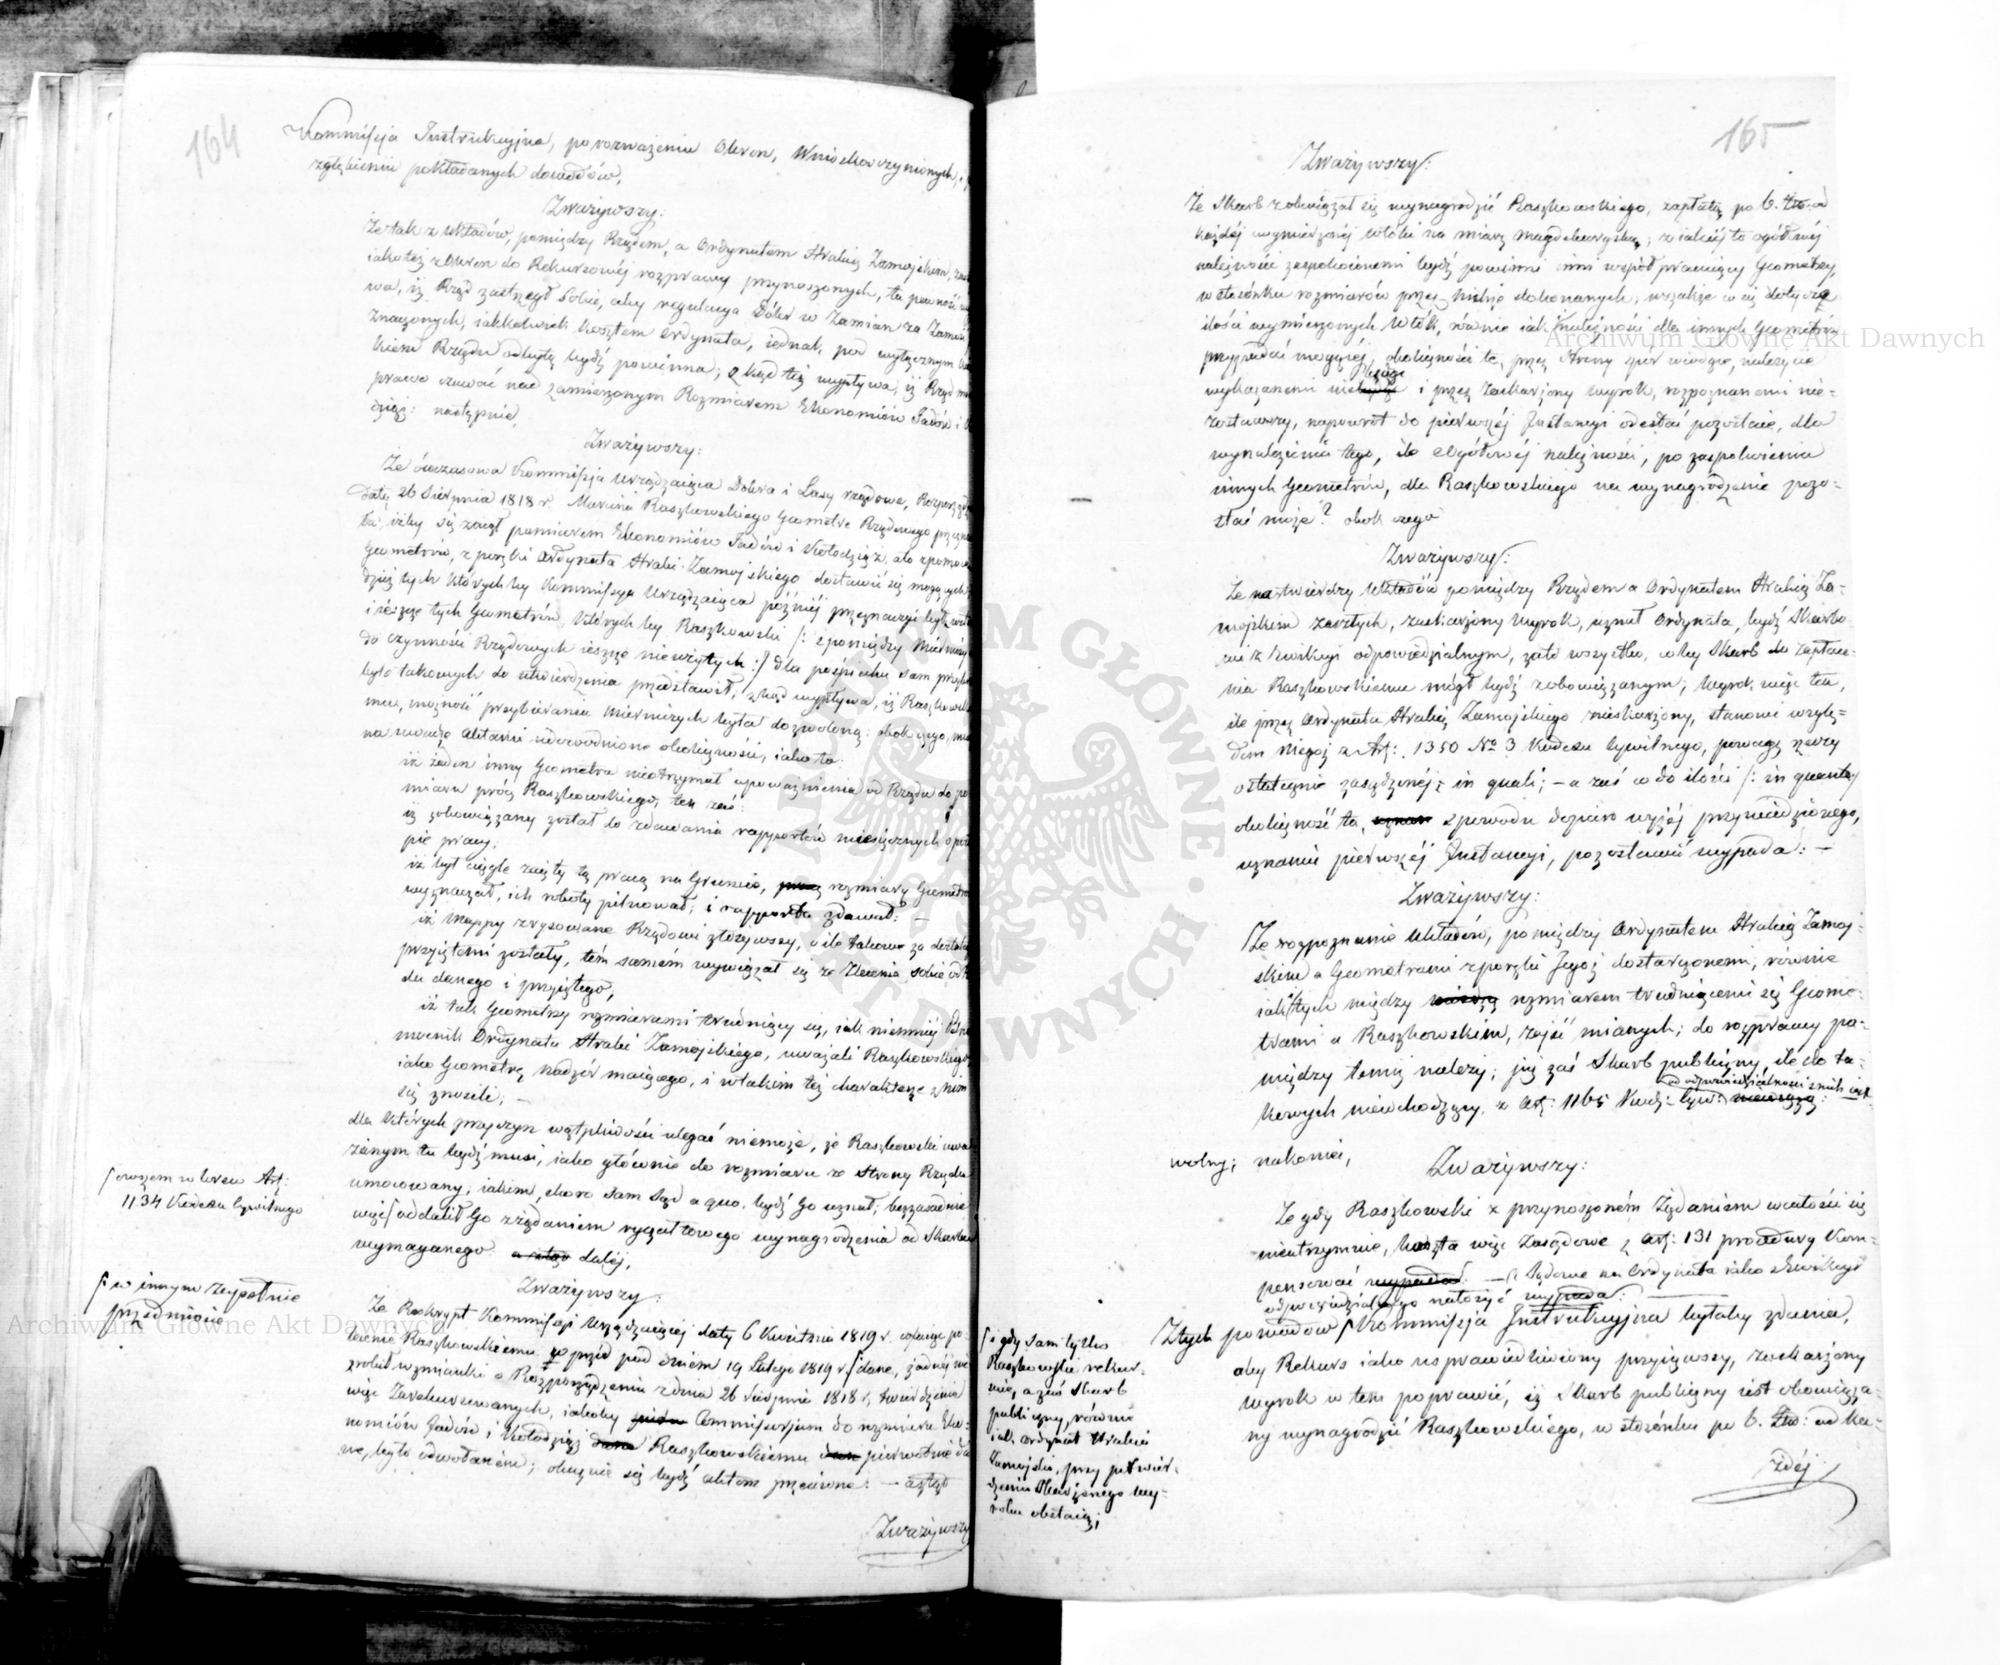 164
Kommissja Instrukcyjna, po rozważeniu Obron, Wniosków czynionych, i
zgłębieniu pokładanych dowodów,
Zważywszy:
Że tak z Układów, pomiędzy Rządem, a Ordynatem Hrabią Zamojskim,
iako też z Obron do Rekursowéj rozprawy przynoszonych, ta pewność
wa, iż Rząd zastrzegł sobie, aby regulacya Dóbr w Zamian za Zamość
znaczonych, iakkolwiek kosztem Ordynata, iednak, pod wyłącznym
kiem Rządu odbytą bydź powinna; zkąd też wypływa, iż Rząd
prawo czuwać nad zamierzonym Rozmiarem Ekonomiów Jadów i
dziąż: następnie,
Zważywszy:
Że ówczasowa Kommissja Urządzaiąca Dobra i Lasy rządowe,
datą 26 Sierpnia 1818 r. Marcina Raszkowskiego Geometrę Rządowego
ła, iżby się zaiął pomiarem Ekonomiów Jadów i Kołodziąż, ato z pomocą
Geometrów, z poręki Ordynata Hrabi Zamojskiego dostawić się mogących,
dzież tych których by Kommissya Urządzaiąca późniéj przeznaczyć
i ieszcze tych Geometrów, których by Raszkowski /: z pomiędzy
do czynności Rządowych ieszcze nieużytych :/ dla pośpiechu sam
było takowych do utwierdzenia przedstawił, zkąd wypływa, iż
mu, możność przybierania Mierniczych była dozwoloną: obok czego,
na uwagę Aktami udowodnione okoliczności, iako to:
iż żaden inny Geometra nieotrzymał upoważnienia od Rządu do
miaru prócz Raszkowskiego; ten zaś:
iż zobowiązany został do zdawania rapportów miesięcznych o
pie pracy;
iż był ciągle zaięty tą pracą na Gruncie, rozmiary
wyznaczał, ich roboty pilnował; i rapporta zdawał: –
iż Mappy zrysowane Rządowi złożywszy, o ile takowe za
przyiętemi zostały, tém samém wywiązał się ze Zlecenia sobie
du danego i przyiętego,
iż tak Geometrzy rozmiarami trudniący się, iak niemniéj
mocnik Ordynata Hrabi Zamojskiego, uważali Raszkowskiego,
iako Geometrę nadzór maiącego, i w takim też charakterze z nim
się znosili; –
dla których przyczyn wątpliwości ulegać niemoże, że Raszkowski
żanym tu bydź musi, iako głównie do rozmiaru ze strony Rządu
umocowany; iakim, skoro sam Sąd a quo, bydź Go uznał; bezzasadnie
więc ∫ oddalił Go z żądaniem ryczałtowego wynagrodzenia od Skarbu
wymaganego: daléj,
∫ owszem w brew Art:
1134 Kodexu Cywilnego
Zważywszy:
Że Reskrypt Kommissji Urządzaiącéj daty 6 Kwietnia 1819 r. cofaiąc po-
lecenie Raszkowskiemu poprzód pod dniem 19 Lutego 1819 r ∫ dane, żadnéj nie
zrobił wzmianki o Rozporządzeniu z dnia 26 Sierpnia 1818 r, twierdzenie
więc Zarekursowanych, iakoby Commissorjum do rozmiaru Eko-
nomiów Jadów i Kołodziąż Raszkowskiemu pierwotnie
ne, było odwołaniem; okazuie się bydź aktom przeciwne: –
∫ w innym zupełnie
przedmiocie
Zważywszy
165
Zważywszy:
Że Skarb zobowiązał się wynagrodzić Raszkowskiego, zapłatą po 6. Złto: od
każdéj wymierzonéj włóki na miarę Magdeburgską; z iakiéj to ogółowéj
należności zaspokoionemi bydź powinni inni współpracuiący Geometrzy,
w stosunku rozmiarów przez nichże dokonanych; wszakże co się dotycze
ilości wymierzonych Włók, równie iak należności dla innych Geometrów
przypadać mogącéj, okoliczności te, przez Strony spór wiodące, należycie
wykazanemi nie i przez zaskarżony wyrok, rozpoznanemi nie-
zostawszy, napowrót do pierwszéj Instancyi odesłać pozostaie, dla
wynalezienia tego, ile z Ogółowéj należności, po zaspokoieniu
innych Geometrów, dla Raszkowskiego na wynagrodzenie pozo-
stać może? obok czego
Zważywszy:
Że na twierdzy Układów pomiędzy Rządem a Ordynatem Hrabią Za-
mojskim zaszłych, zaskarżony Wyrok, uznał Ordynata, bydź Skarbo-
wi z Ewikcyi odpowiedzialnym, zato wszystko, coby Skarb do zapłace-
nia Raszkowskiemu mógł bydź zobowiązanym; Wyrok więc ten,
ile przez Ordynata Hrabię Zamojskiego nieskarżony, stanowi wzglę-
dem Niego z Art: 1350 No 3 Kodexu Cywilnego, powagę rzeczy
ostatecznie zasądzonéj in quali; – a zaś co do ilości /: in quanto :/
okoliczność ta, z powodu dopiero wyżéj przywiedzionego,
uznaniu pierwszéj Instancyi, pozostawić wypada: –
Zważywszy:
Że rozpoznanie Układów, pomiędzy Ordynatem Hrabią Zamoj-
skim a Geometrami z poręki Jego dostarczonemi, równie
iak tych między rozmiarem trudniącemi się Geome-
trami a Raszkowskim, zajść mianych; do rozprawy po-
między temiż należy; już zaś Skarb publiczny, ile do ta-
kowych niewchodzący, z Art: 1165 Kod: Cyw: od odpowiedzialności z nich iest
wolny; nakoniec,
Zważywszy:
Że gdy Raszkowski z przynoszoném Żądaniem w całości się
nieutrzymuie, koszta więc Zasądowe z Art: 131 procedury Kom-
pensować wypada – Sądowe na Ordynata iako z Ewikcyi
odpowiedzialnego nałożyć wypada:
Z tych powodów ∫ Kommissja Instrukcyjna byłaby zdania,
aby Rekurs iako usprawiedliwiony przyiąwszy, zaskarżony
wyrok w tem poprawić, iż Skarb publiczny iest obowiąza-
ny wynagrodzić Raszkowskiego, w stosunku po 6. Złto: od ka-
żdéj
∫ i gdy sam tylko
Raszkowski rekur-
suie, a zaś Skarb
publiczny, równie
iak Ordynat Hrabia
Zamojski, przy potwier-
dzeniu Skarżonego wy-
roku obstaią;
Archiwum Główne Akt Dawnych
Archiwum Główne Akt Dawnych
ARCHIWUM GŁÓWNE • AKT DAWNYCH •